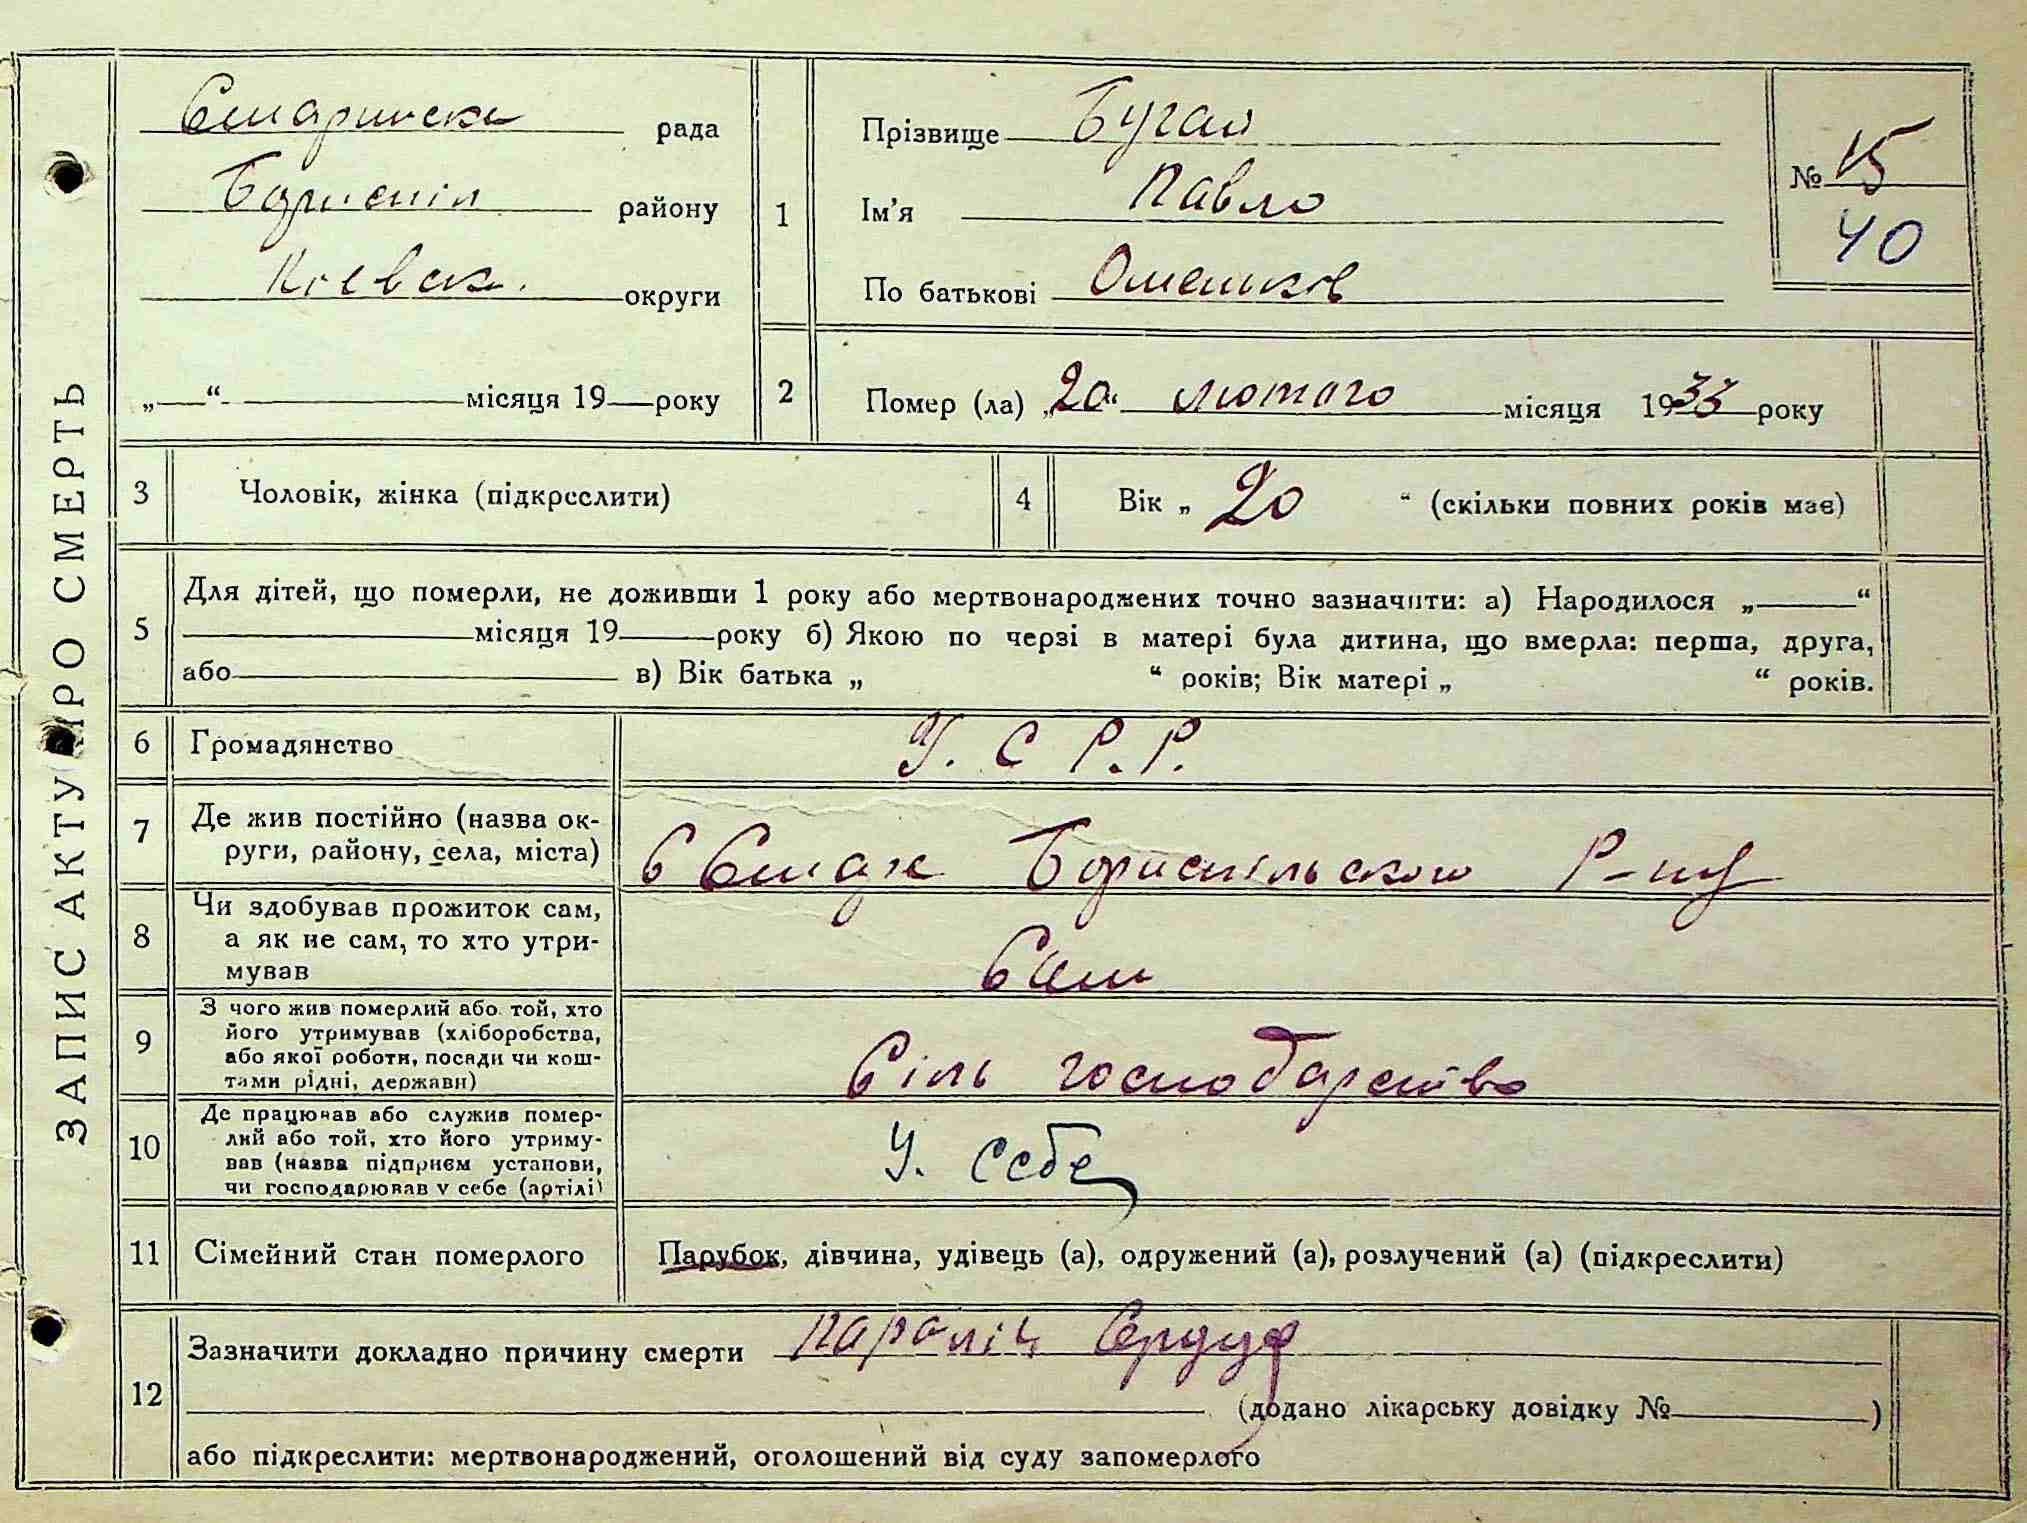 ЗАПИС АКТУ ПРО СМЕРТЬ
Старинска рада
Бориспіл району
Киевск. округи
„ “ місяця 19 року
1
Прізвище Бугай
Ім'я Павло
По батькові
№ 15
40
2
Помер (ла) „20“ лютого місяця 1933 року
3 Чоловік, жінка (підкреслити)
4 Вік „ 20 “ (скільки повних років має)
5
Для дітей, що померли, не доживши 1 року або мертвонароджених точно зазначити: а) Народилося „ “
місяця 19 року б) Якою по черзі в матері була дитина, що вмерла: перша, друга,
або в) Вік батька „ “ років; Вік матері „ “ років.
6 Громадянство У. С Р. Р.
7 Де жив постійно (назва ок-
руги, району, села, міста) С Стар Бориспільского Р-ну
8 Чи здобував прожиток сам,
а як не сам, то хто утри-
мував Сам
9 З чого жив померлий або той, хто
його утримував (хліборобства,
або якої роботи, посади чи кош-
тами рідні, держави) Сіль господарство
10 Де працював або служив помер-
лий або той, хто його утриму-
вав (назва підприєм установи,
чи господарював у себе (артілі) У. Себе
11 Сімейний стан померлого Парубок, дівчина, удівець (а), одружений (а), розлучений (а) (підкреслити)
12
Зазначити докладно причину смерти параліч Серця
(додано лікарську довідку № )
або підкреслити: мертвонароджений, оголошений від суду запомерлого